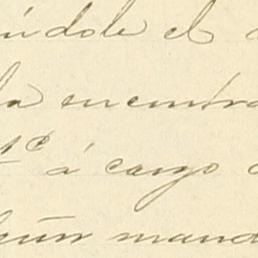 ndole el
la encontra
1º á cargo
gún mand